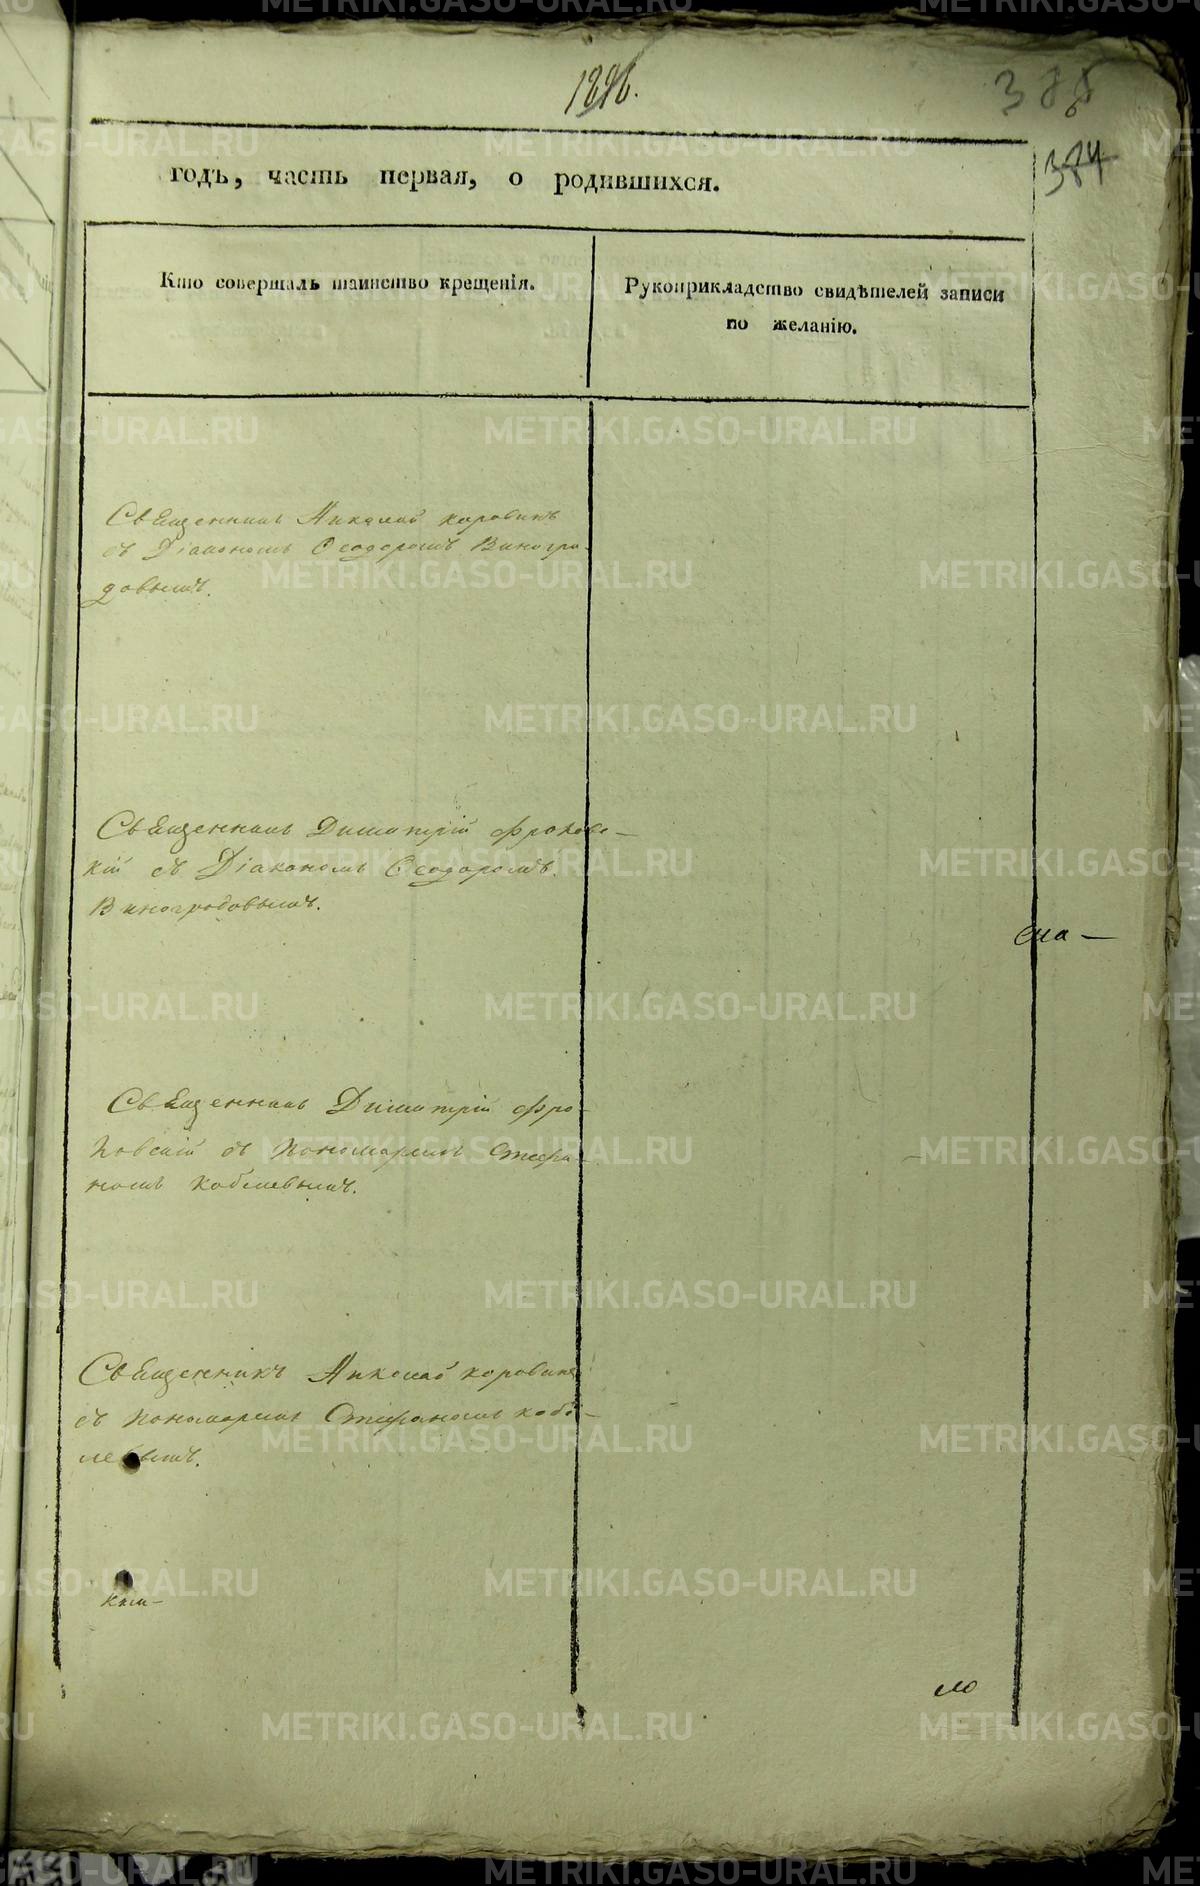 388
384
годъ, часть первая, о родившихся.
Кто совершалъ таинство крещенія.
Рукоприкладство свидѣтелей записи
по желанію.
Священникъ Николай Коровинъ
съ Діакономъ Ѳеодоромъ Виногра-
довымъ.
Священникъ Димитрій
кій съ Діакономъ Ѳеодоромъ
Виноградовымъ.
Священникъ Димитрій
съ Пономаремъ Стефа-
номъ Кобелевымъ.
Священникъ Николай Коровинъ
съ Пономаремъ Стефаномъ Кобе-
левымъ.
METRIKI.GASO-URAL.RU